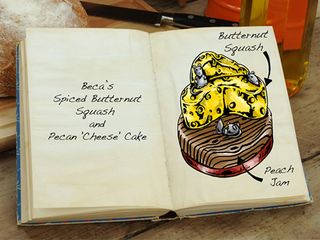 Beca's
Spiced Butternut
Squash
and
Pecan 'Cheese' Cake
Butternut
Squash
Peach
Jam